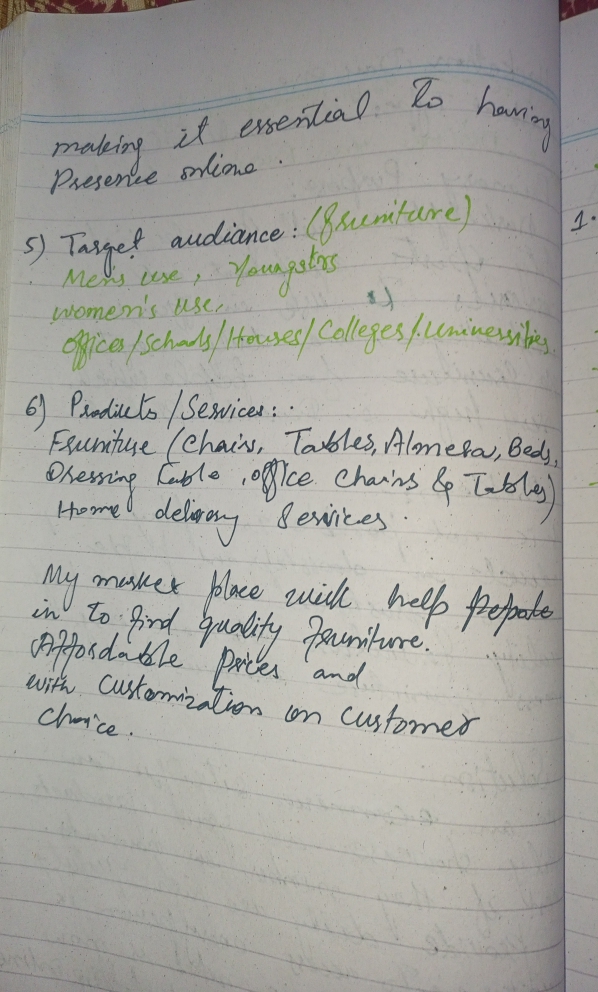 making it essential to having
Presence online.
5) Target audiance: (Fruniture)
Men's use, Youngstrs
women's use,
offices/Schools/Houses/Colleges/Universities
6) Products/Services:
Fruniture (Chairs, Tables, Almera, Beds,
Dressing Table, office Chairs & Tables)
Home delivery Services.
My market place will help
in to find quality fruniture.
Affordable prices and
with customization on customer
choice.
1.